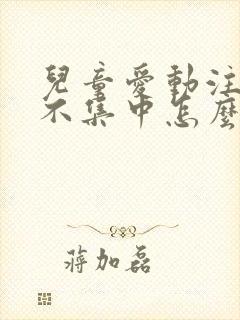 兒童愛動注
不集中怎麼
蔣加磊